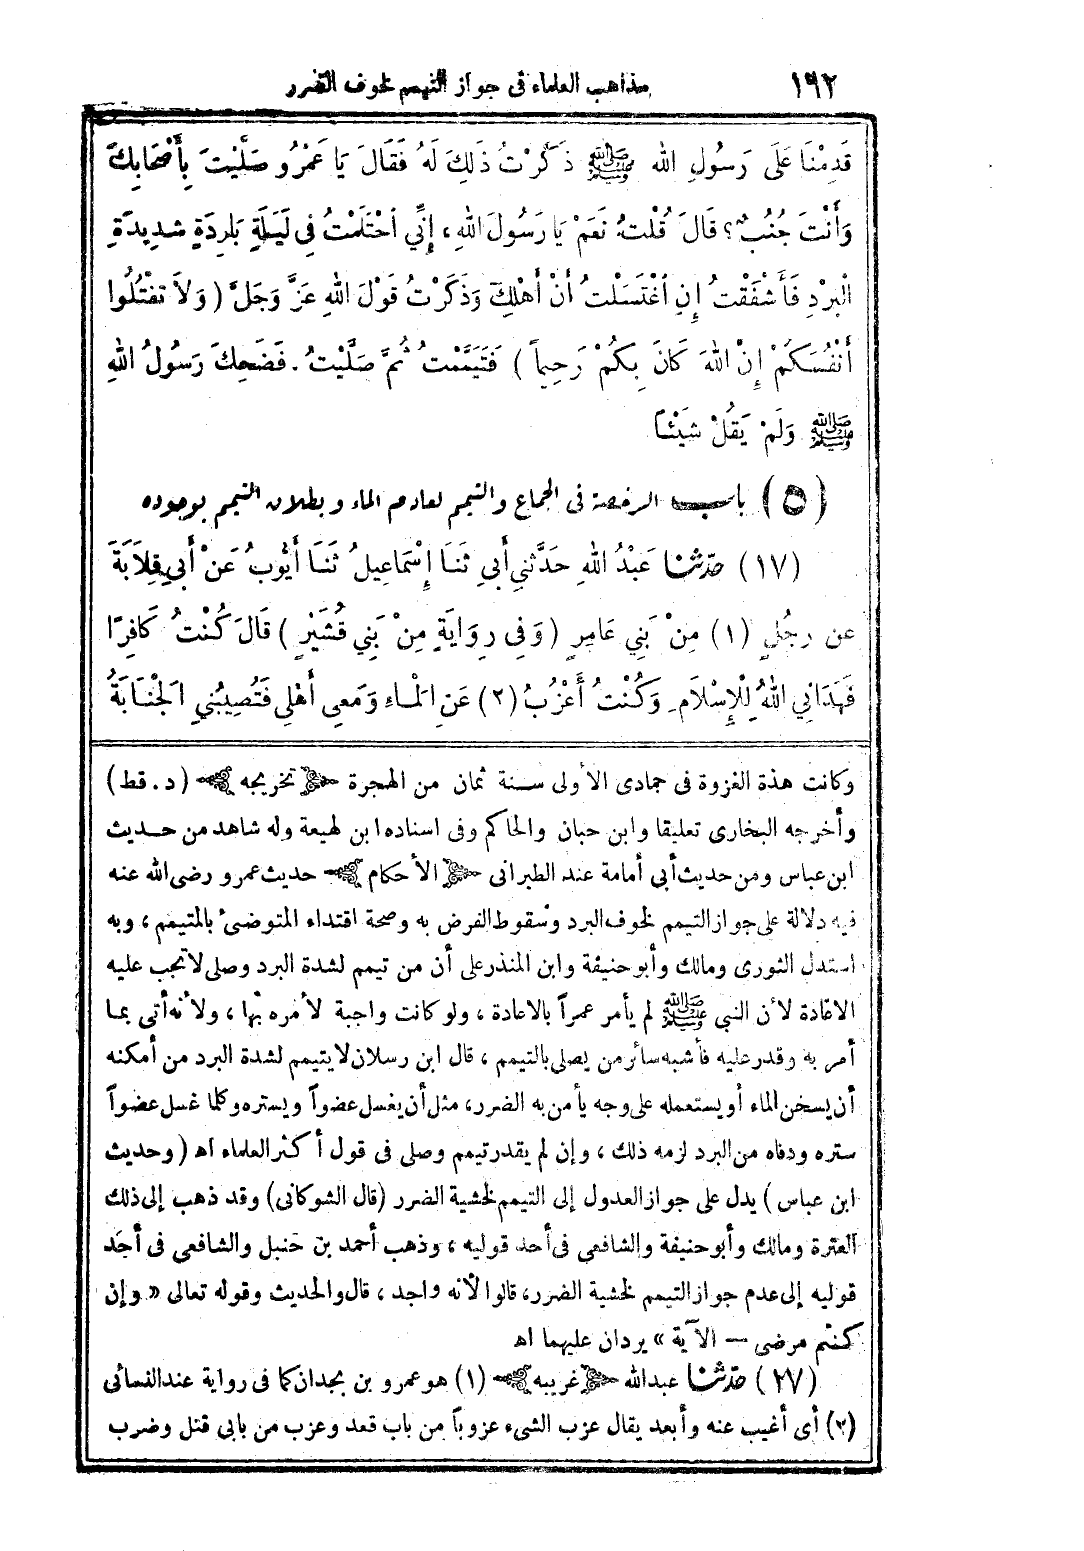 ١٩٢ مذاهب العلماء فى جواز التيمم لخوف الضرر
قَدِمْنَا عَلَى رَسُولِ الله ﷺ ذَكَرْتُ ذَلِكَ لَهُ فَقَالَ يَا عَمْرُو صَلَّيْتَ بِأَصْحَابِكَ
وَأَنْتَ جُنُبٌ؟ قَالَ قُلْتُ نَعَمْ يَا رَسُولَ اللهِ، إِنِّي احْتَلَمْتُ فِي لَيْلَةٍ بَارِدَةٍ شَدِيدَةِ
الْبَرْدِ فَأَشْفَقْتُ إِنِ اغْتَسَلْتُ أَنْ أَهْلِكَ وَذَكَرْتُ قَوْلَ اللهِ عَزَّ وَجَلَّ (وَلاَ تَقْتُلُوا
أَنْفُسَكُمْ إِنَّ اللهَ كَانَ بِكُمْ رَحِيماً) فَتَيَمَّمْتُ ثُمَّ صَلَّيْتُ. فَضَحِكَ رَسُولُ اللهِ
ﷺ وَلَمْ يَقُلْ شَيْئًا
(٥) باب الرخصة فى الجماع والتيمم لعادم الماء وبطلان التيمم بوجوده
(١٧) حدّثنا عَبْدُ اللهِ حَدَّثَنِي أَبِي ثَنَا إِسْمَاعِيلُ ثَنَا أَيُّوبُ عَنْ أَبِي قِلاَبَةَ
عن رجُلٍ (١) مِنْ بَنِي عَامِرٍ (وَفِي رِوَايَةٍ مِنْ بَنِي قُشَيْرٍ) قَالَ كُنْتُ كَافِرًا
فَهَدَانِي اللهُ لِلْإِسْلَامِ. وَكُنْتُ أَعْزُبُ (٢) عَنِ الْمَاءِ وَمَعِي أَهْلِي فَتُصِيبُنِي الْجَنَابَةُ
وكانت هذة الغزوة فى جمادى الأولى سنة ثمان من الهجرة ﴿تخريجه﴾ (د. قط)
وأخرجه البخارى تعليقا وابن حبان والحاكم وفى اسناده ابن لهيعة وله شاهد من حديث
ابن عباس ومن حديث أبى أمامة عند الطبرانى ﴿الأحكام﴾ حديث عمرو رضى الله عنه
فيه دلالة على جواز التيمم لخوف البرد وسقوط الفرض به وصحة اقتداء المتوضىء بالمتيمم، وبه
استدل الثورى ومالك وأبو حنيفة وابن المنذر على أن من تيمم لشدة البرد وصلى لا تجب عليه
الاعادة لأن النبى ﷺ لم يأمر عمراً بالاعادة، ولو كانت واجبة لأمره بها، ولأنه أتى بما
أمر به وقدر عليه فأشبه سائر من يصلى بالتيمم، قال ابن رسلان لا يتيمم لشدة البرد من أمكنه
أن يسخن الماء أو يستعمله على وجه يأمن به الضرر، مثل أن يغسل عضواً ويستره وكلما غسل عضواً
ستره ودفاه من البرد لزمه ذلك، وإن لم يقدر تيمم وصلى فى قول أكثر العلماء اه (وحديث
ابن عباس) يدل على جواز العدول إلى التيمم لخشية الضرر (قال الشوكانى) وقد ذهب إلى ذلك
العترة ومالك وأبو حنيفة والشافعى فى أحد قوليه، وذهب أحمد بن حنبل والشافعى فى أحد
قوليه إلى عدم جواز التيمم لخشية الضرر، قالوا لأنه واجد، قال والحديث وقوله تعالى «وإن
كنتم مرضى — الآية» يردان عليهما اه
(٢٧) حدّثنا عبدالله ﴿غريبه﴾ (١) هو عمرو بن بجدان كما فى رواية عند النسائى
(٢) أى أغيب عنه وأبعد يقال عزب الشىء عزوباً من باب قعد وعزب من بابى قتل وضرب